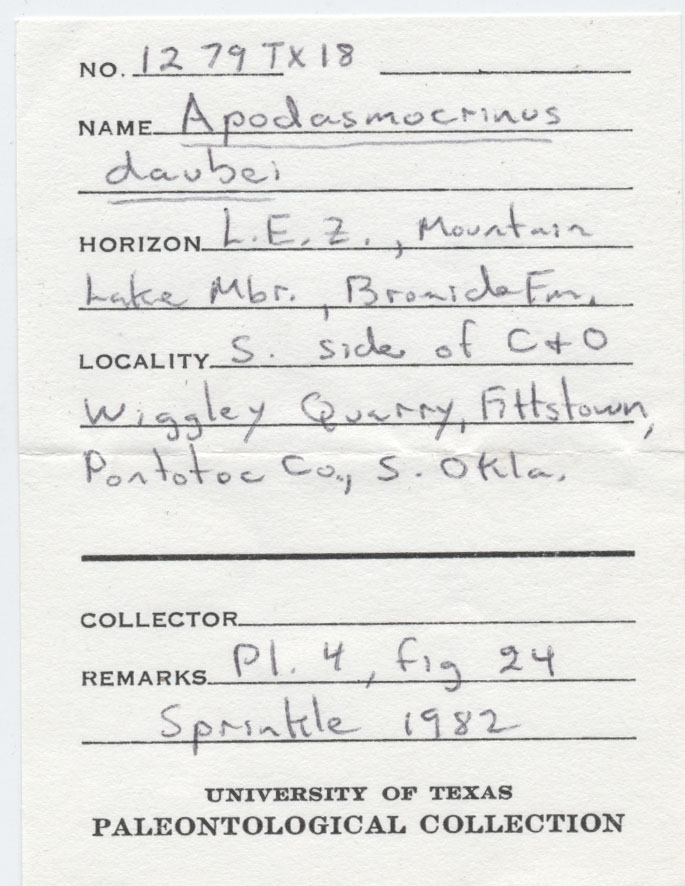 NO. 12 79 TX 18
NAME Apodasmocrinus
daubei
HORIZON L.E.Z., Mountain
Lake Mbr., Bromide Fm.
LOCALITY S. side of C+O
Wiggley Quarry, Fittstown,
Pontotoc Co., S. Okla.
COLLECTOR
REMARKS Pl. 4, fig 24
Sprinkle 1982
UNIVERSITY OF TEXAS
PALEONTOLOGICAL COLLECTION